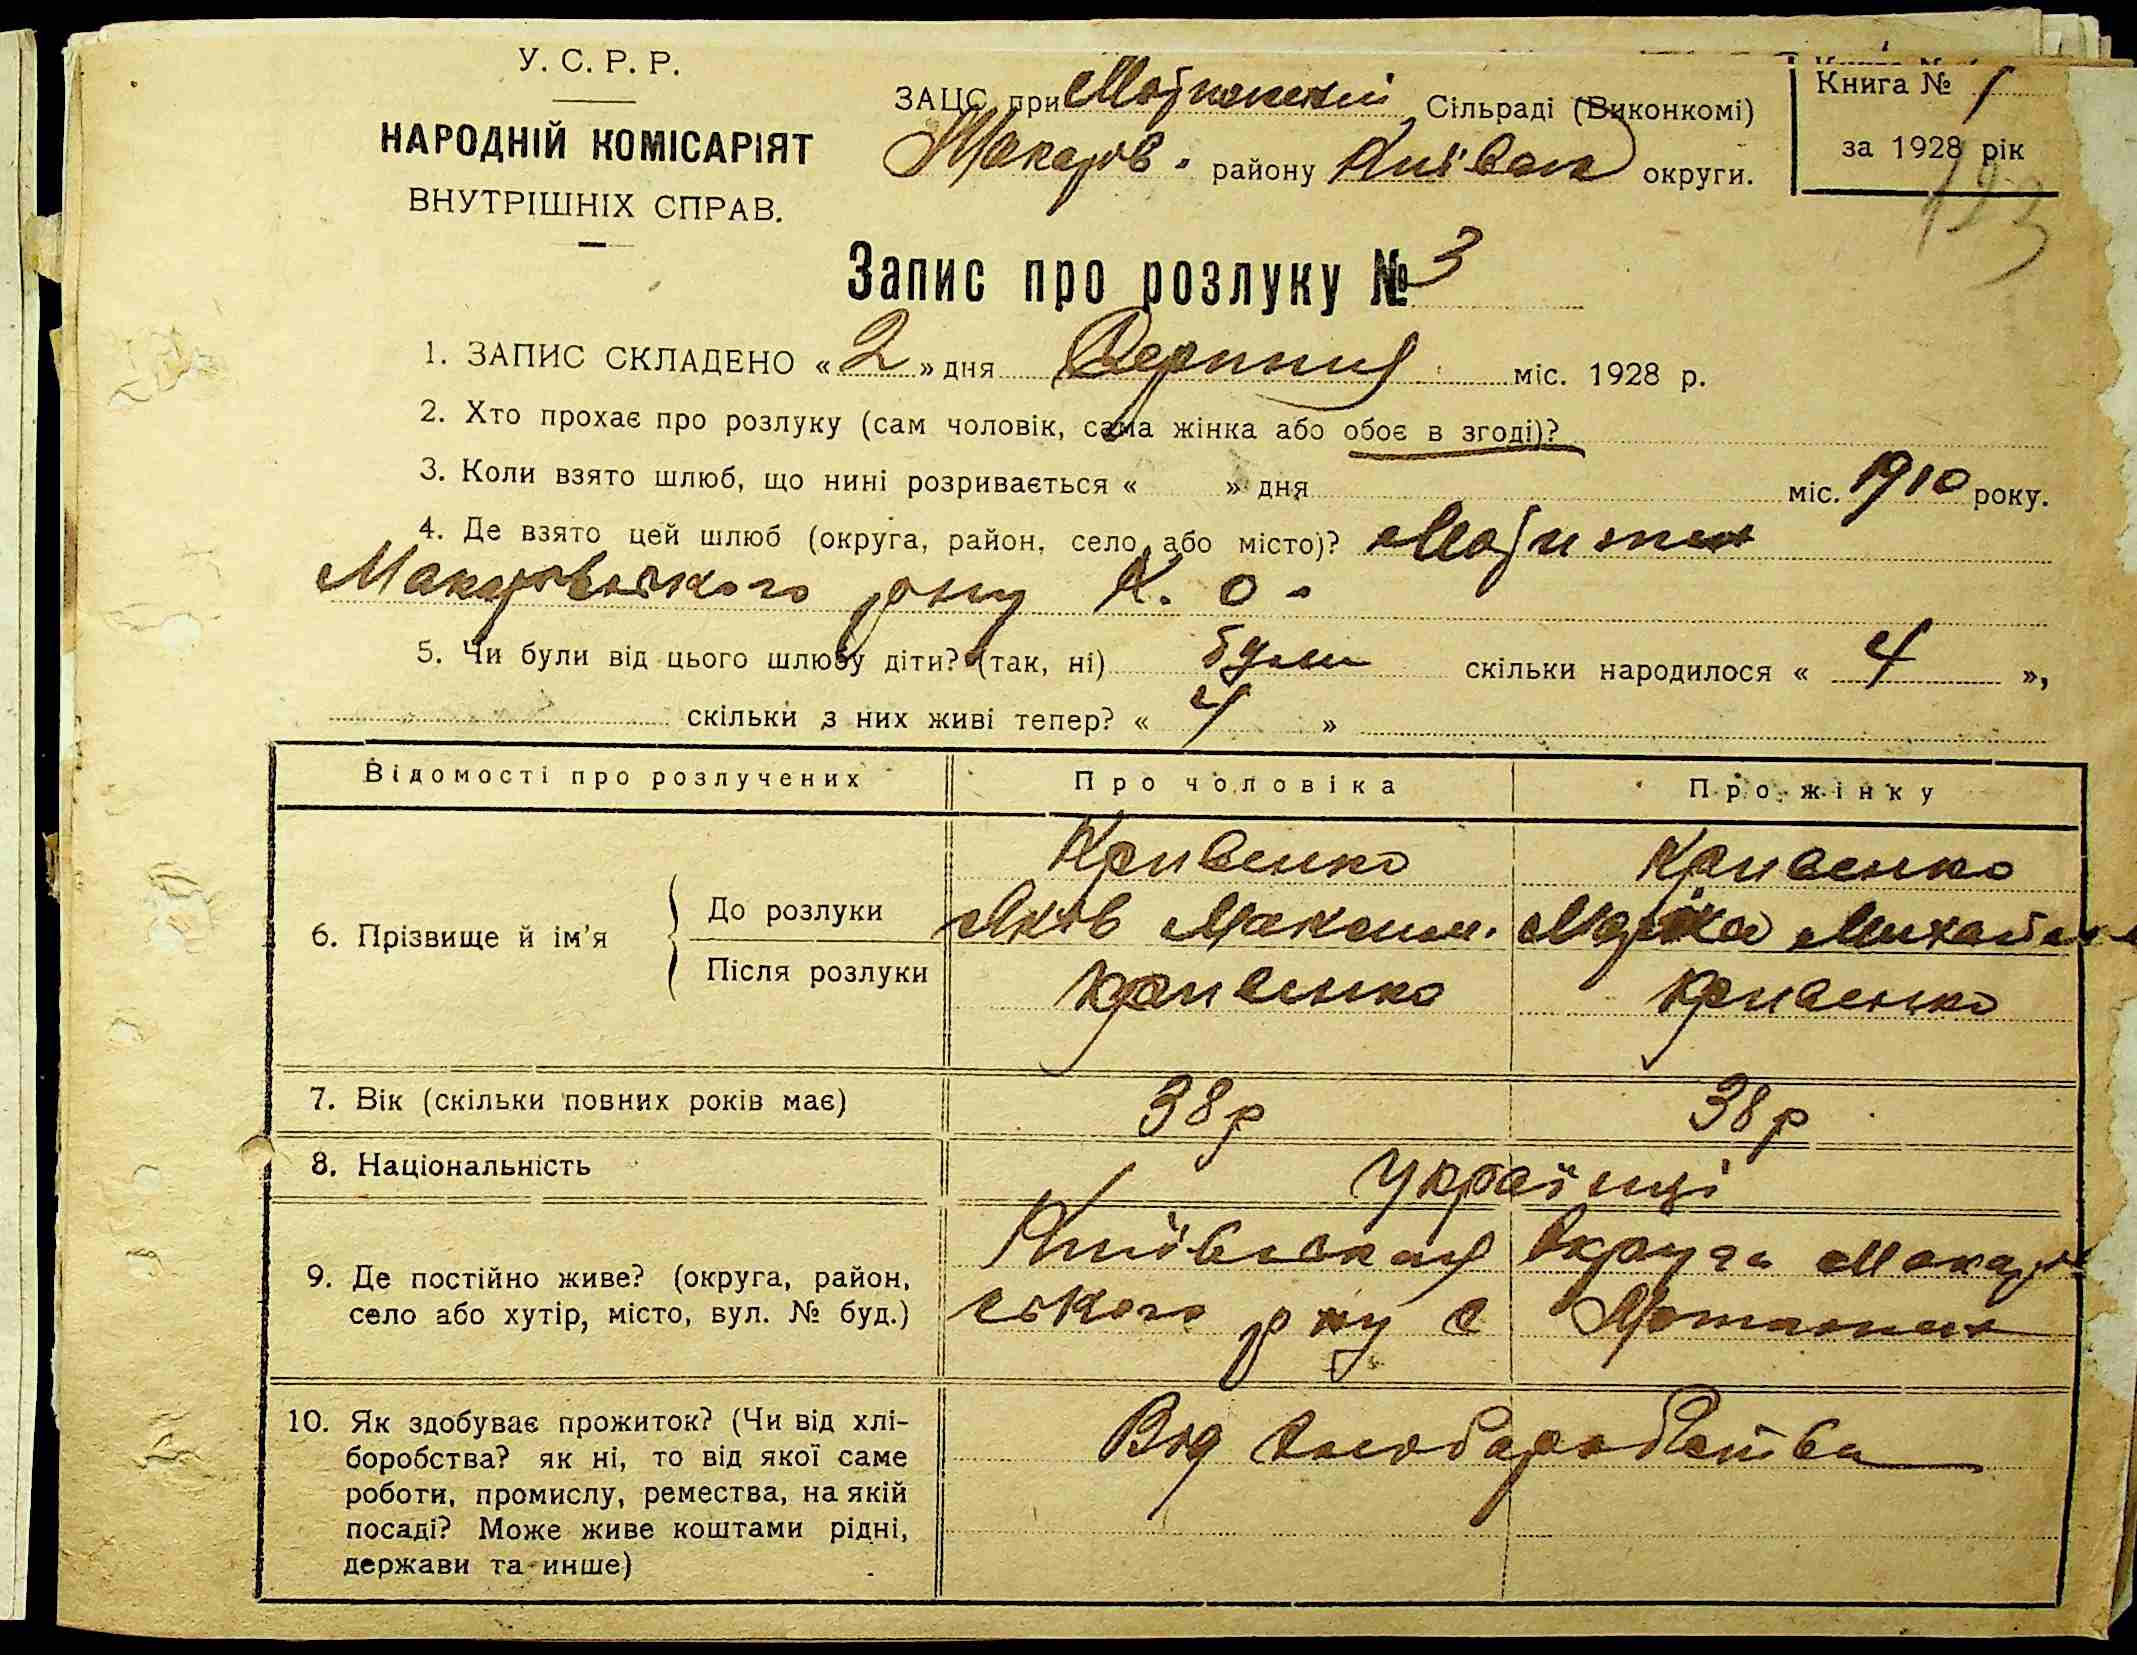 У. С. Р. Р.
НАРОДНІЙ КОМІСАРІЯТ
ВНУТРІШНІХ СПРАВ.
ЗАЦС при Сільраді (Виконкомі)
Макарів. району Київськ округи.
Книга № 1
за 1928 рік
193
Запис про розлуку № 3
1. ЗАПИС СКЛАДЕНО «2» дня Серпня міс. 1928 р.
2. Хто прохає про розлуку (сам чоловік, сама жінка або обоє в згоді)?
3. Коли взято шлюб, що нині розривається « » дня міс. 1910 року.
4. Де взято цей шлюб (округа, район, село або місто)? Мотижин
Макарівського рну К. О.
5. Чи були від цього шлюбу діти? (так, ні) були скільки народилося « 4 »,
скільки з них живі тепер? « 4 »
Відомості про розлучених Про чоловіка Про жінку
6. Прізвище й ім'я
До розлуки
Після розлуки
Кривенко Кривенко
Яків Максим. Марія Михайл
Кривенко Кривенко
7. Вік (скільки повних років має) 38 р 38 р
8. Національність Українці
9. Де постійно живе? (округа, район,
село або хутір, місто, вул. № буд.)
Київська Округа Макарів
ського рну с Мотижин
10. Як здобуває прожиток? (Чи від хлі-
боробства? як ні, то від якої саме
роботи, промислу, ремества, на якій
посаді? Може живе коштами рідні,
держави та инше)
Від хліборобства